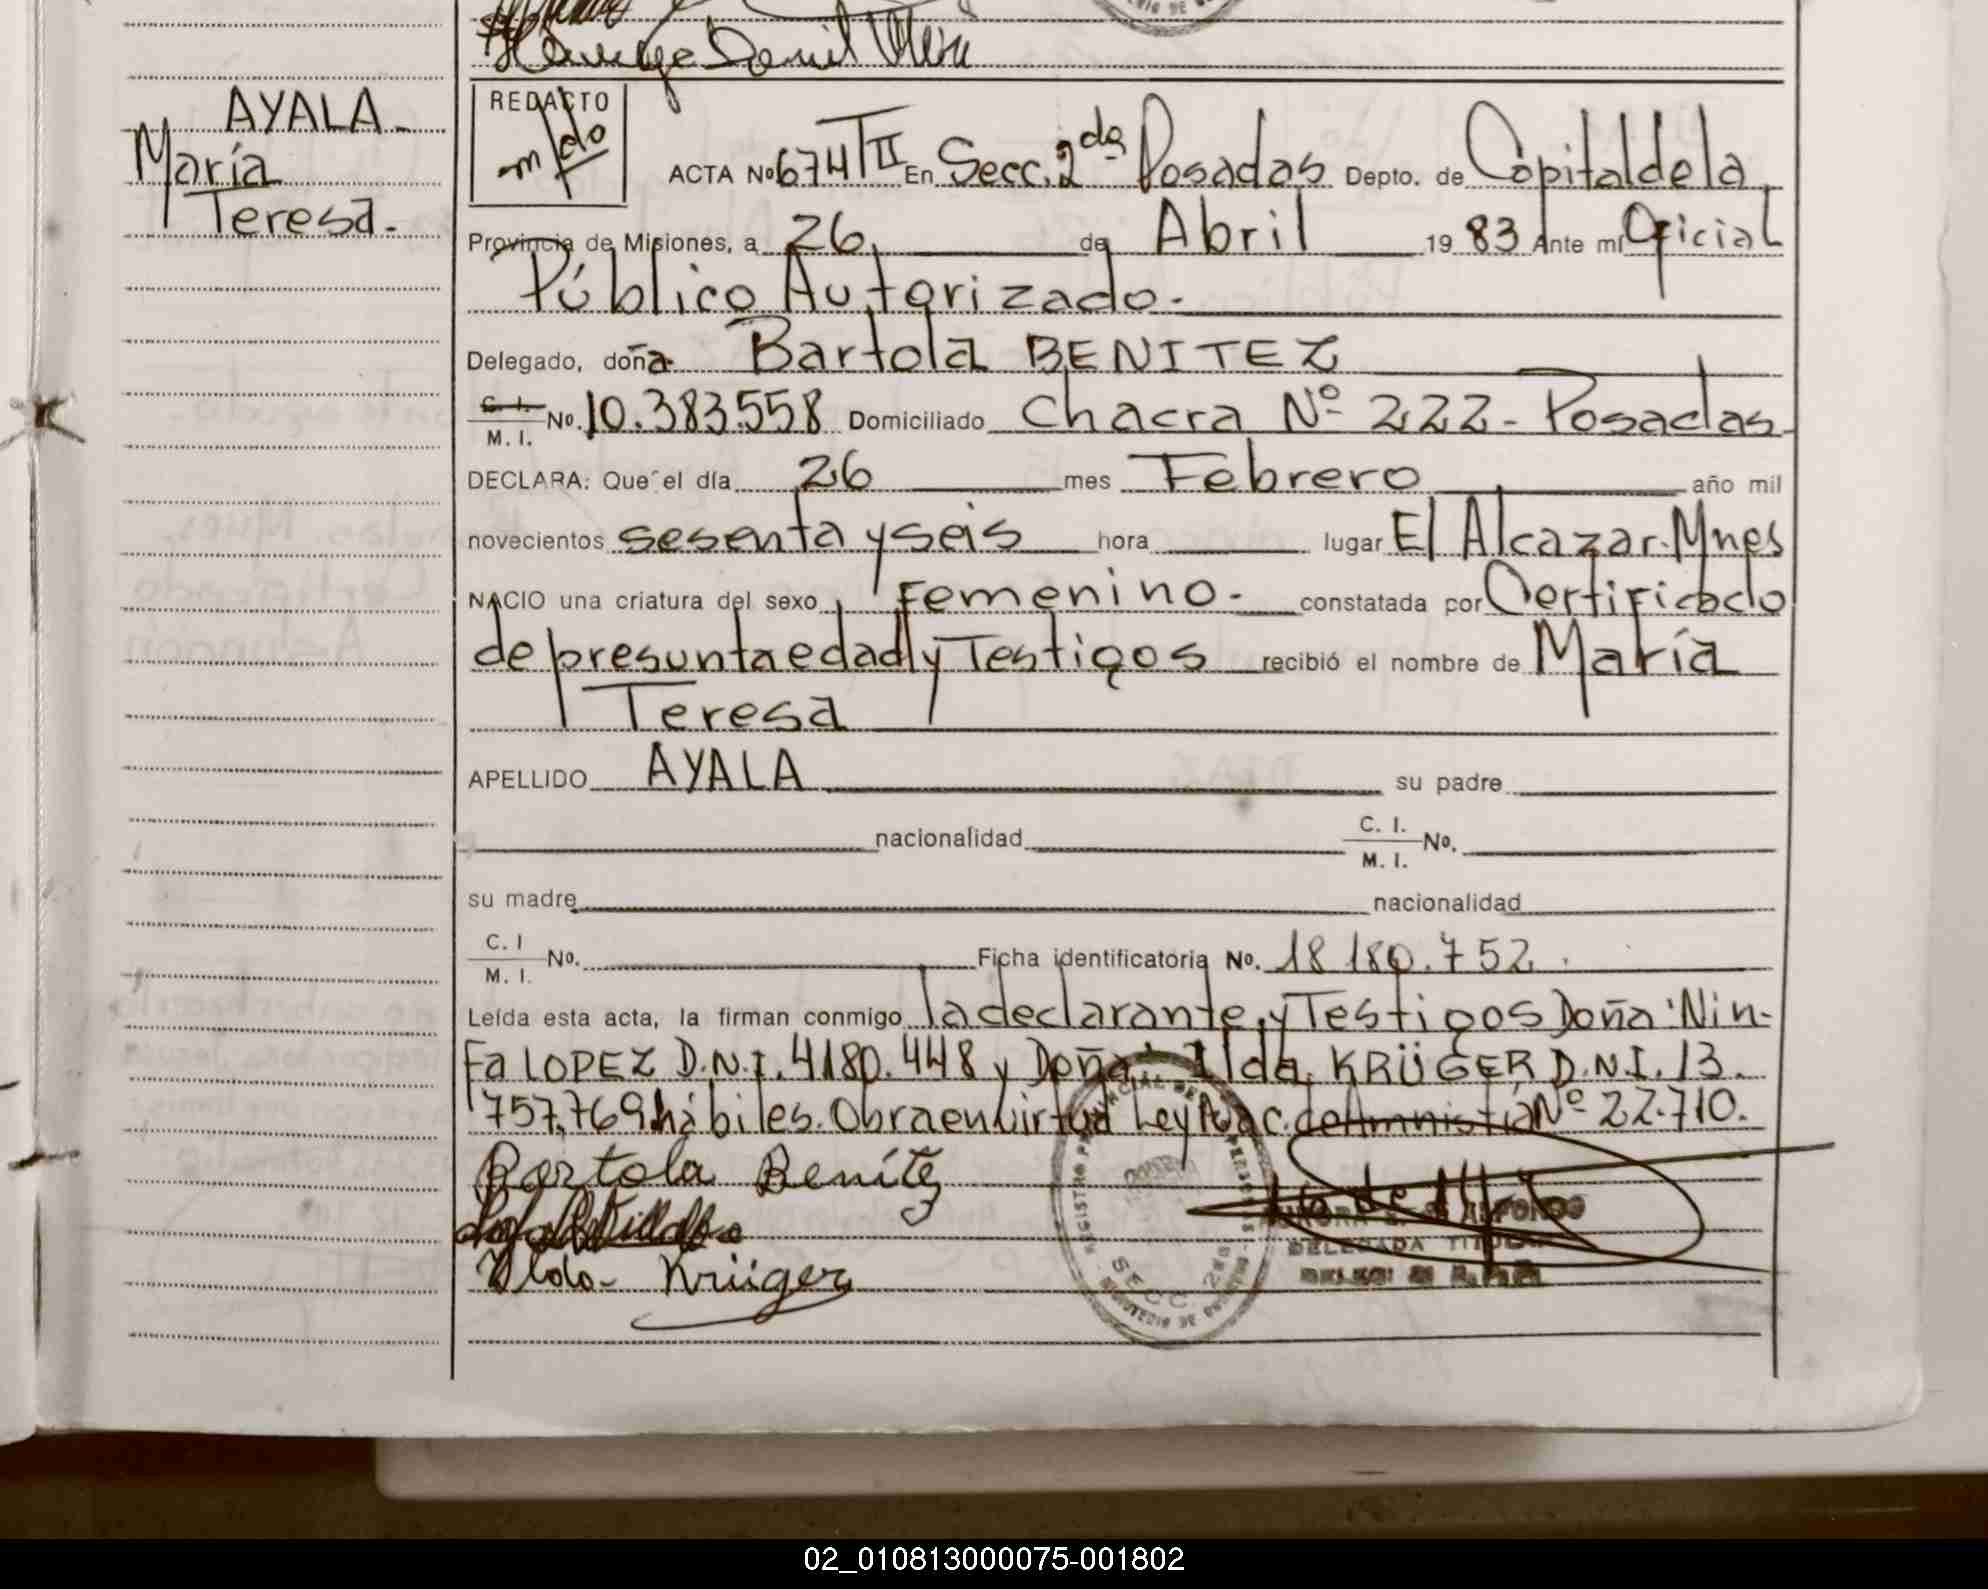 AYALA
María
Teresa.
REDACTO
ACTA Nº 674 TII En Secc. 2da Posadas Depto. de Capital de la
Provincia de Misiones, a 26 de Abril 1983 Ante mí Oficial
Público Autorizado.
Delegado, doña Bartola BENITEZ
C. I.
M. I. No. 10.383.558 Domiciliado Chacra Nº 222 - Posadas
DECLARA: Que el día 26 mes Febrero año mil
novecientos sesenta y seis hora lugar El Alcazar. Mnes
NACIO una criatura del sexo Femenino - constatada por Certificado
de presunta edad y Testigos recibió el nombre de María
Teresa
APELLIDO AYALA su padre
nacionalidad C. I.
M. I. No.
su madre nacionalidad
C. I
M. I. No. Ficha identificatoria No. 18180.752.
Leída esta acta, la firman conmigo la declarante, y Testigos Doña Nin-
fa LOPEZ D.N.I. 4180.448 y Doña Ilda KRÜGER D.N.I. 13.
757.769 hábiles. Obra en virtud Ley Nac. de Amnistía Nº 22.710.
Bartola Benítez
Krüger
DELEGADA TITULAR
SECC. 2da
02_010813000075-001802